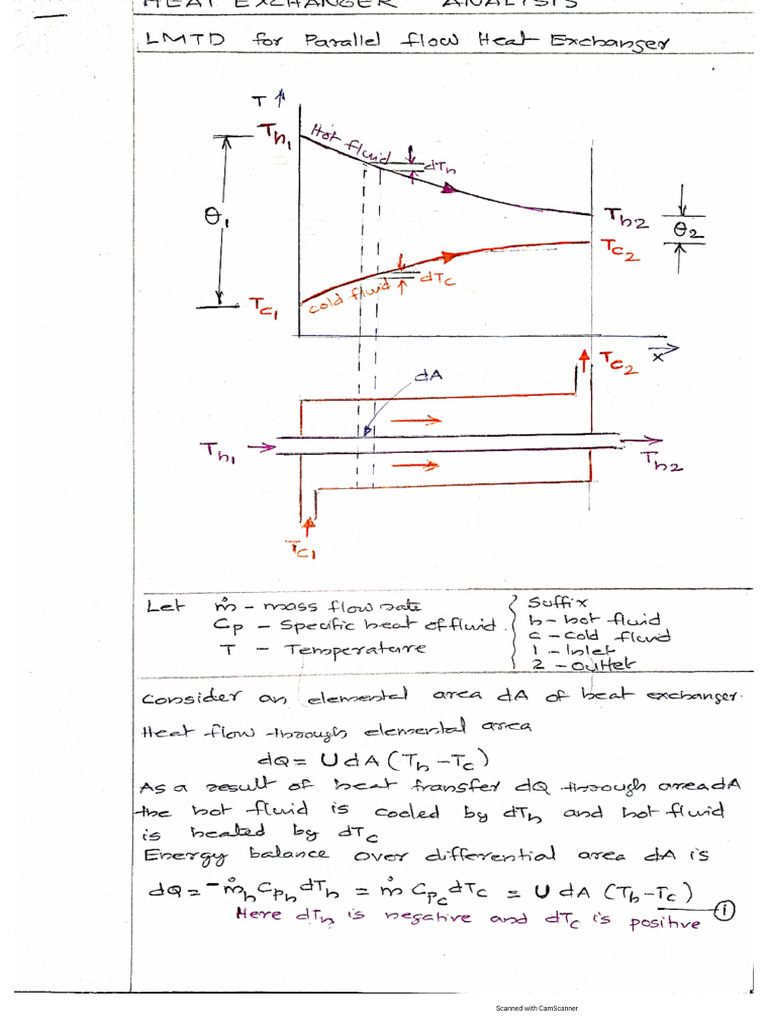 HEAT EXCHANGER ANALYSIS
LMTD for Parallel flow Heat Exchanger
T
Th1
Hot fluid
dTh
θ1
Th2
θ2
Tc2
dTc
cold fluid
Tc1
x
Tc2
dA
Th1
Th2
Tc1
Let ṁ - mass flow rate
Cp - Specific heat of fluid.
T - Temperature
Suffix
h - hot fluid
c - cold fluid
1 - Inlet
2 - outlet
Consider an elemental area dA of heat exchanger.
Heat flow through elemental area
dQ = U dA (Th - Tc)
As a result of heat transfer dQ through area dA
the hot fluid is cooled by dTh and hot fluid
is heated by dTc
Energy balance over differential area dA is
dQ = -ṁh Cph dTh = ṁ Cpc dTc = U dA (Th - Tc) — ①
Here dTh is negative and dTc is positive
Scanned with CamScanner